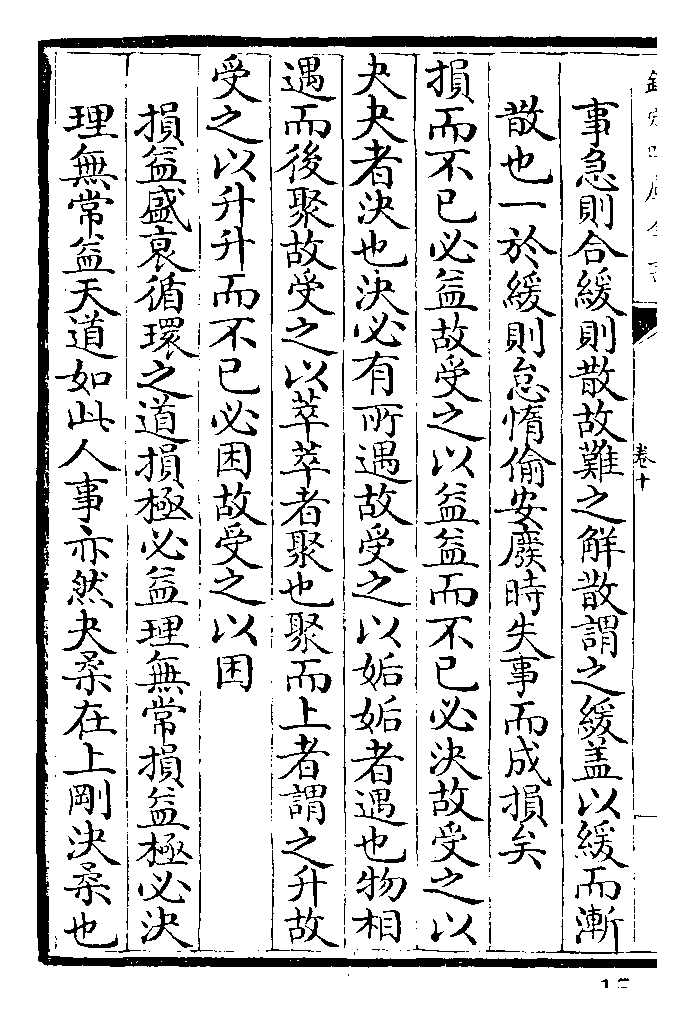 欽定四庫全書
卷十
事急則合緩則散故難之解散謂之緩盖以緩而漸
散也一於緩則怠惰偷安廢時失事而成損矣
損而不已必益故受之以益益而不已必決故受之以
夬夬者決也決必有所遇故受之以姤姤者遇也物相
遇而後聚故受之以萃萃者聚也聚而上者謂之升故
受之以升升而不已必困故受之以困
損益盛衰循環之道損極必益理無常損益極必決
理無常益天道如此人事亦然夬柔在上剛決柔也